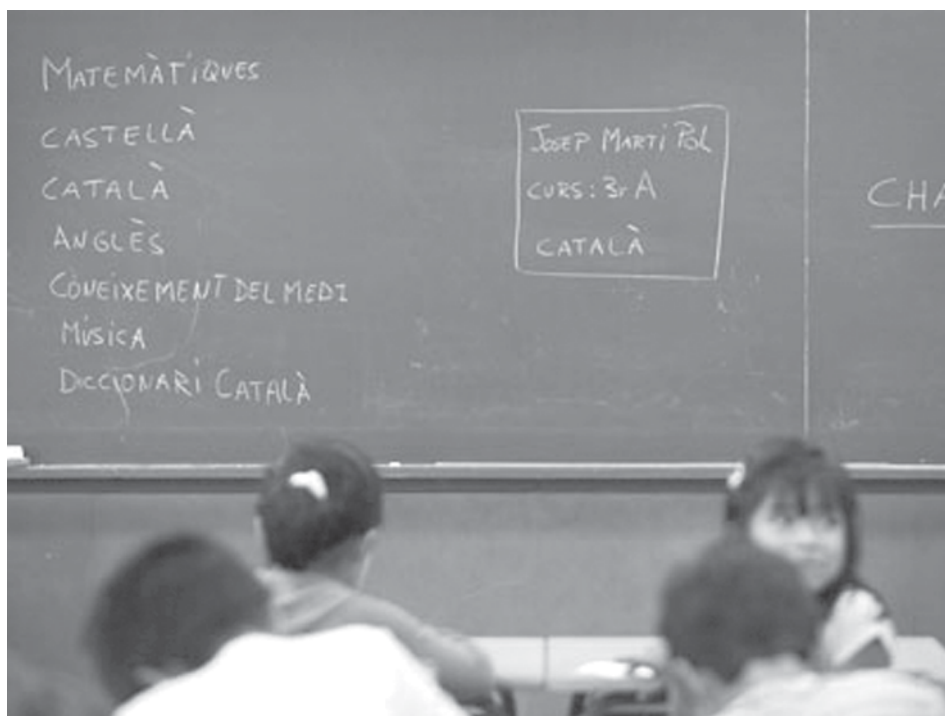 MATEMÀTIQUES
CASTELLÀ
CATALÀ
ANGLÈS
CONEIXEMENT DEL MEDI
MÚSICA
DICCIONARI CATALÀ
JOSEP MARTÍ POL
CURS: 3r A
CATALÀ
CHA